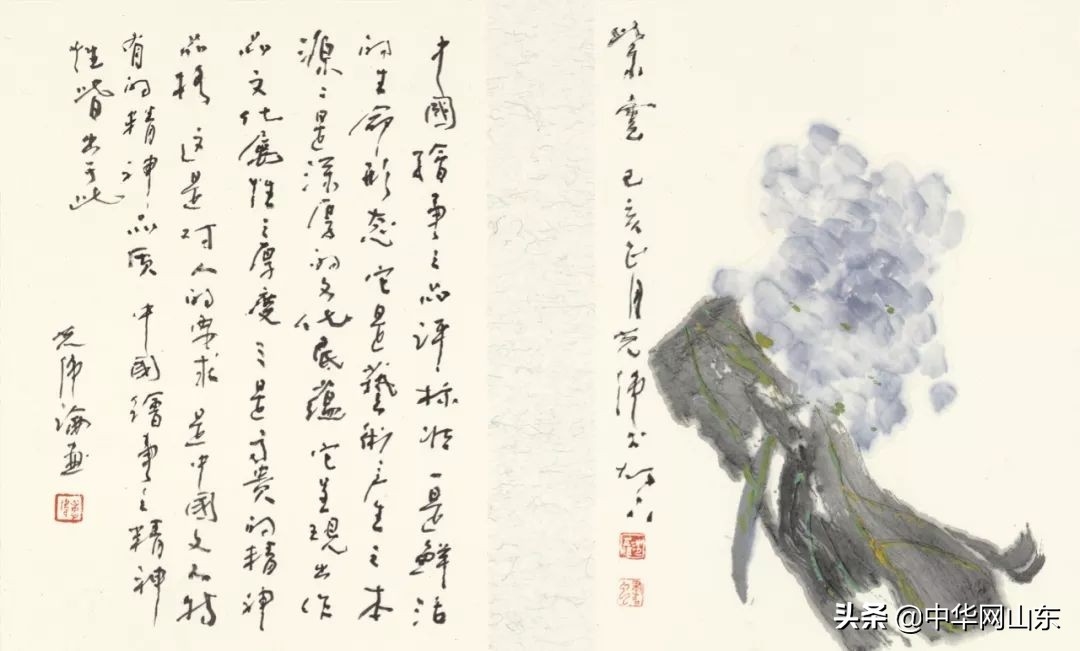 紫雲 己亥正月
中國繪畫之品評标准一是鮮活
的生命形态它是藝術产生之本
源二是深厚的文化底蕴它呈現出作
品文化属性之厚度三是高贵的精神
品格这是对人的要求是中國文化特
有的精神品质中國繪畫之精神
性皆出于此
論画
头条 @中华网山东